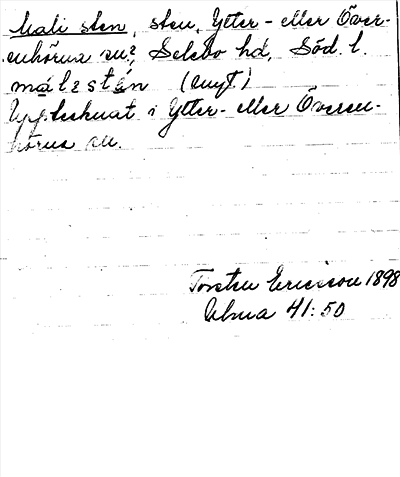 Mali sten, sten, Ytter- eller Över-
enhörna sn?, Selebo hd, Söd. l.
målɛ stén (nytt)
Upptecknat i Ytter- eller Överen-
hörna sn.
Torsten Ericsson 1898
Ulma 41:50